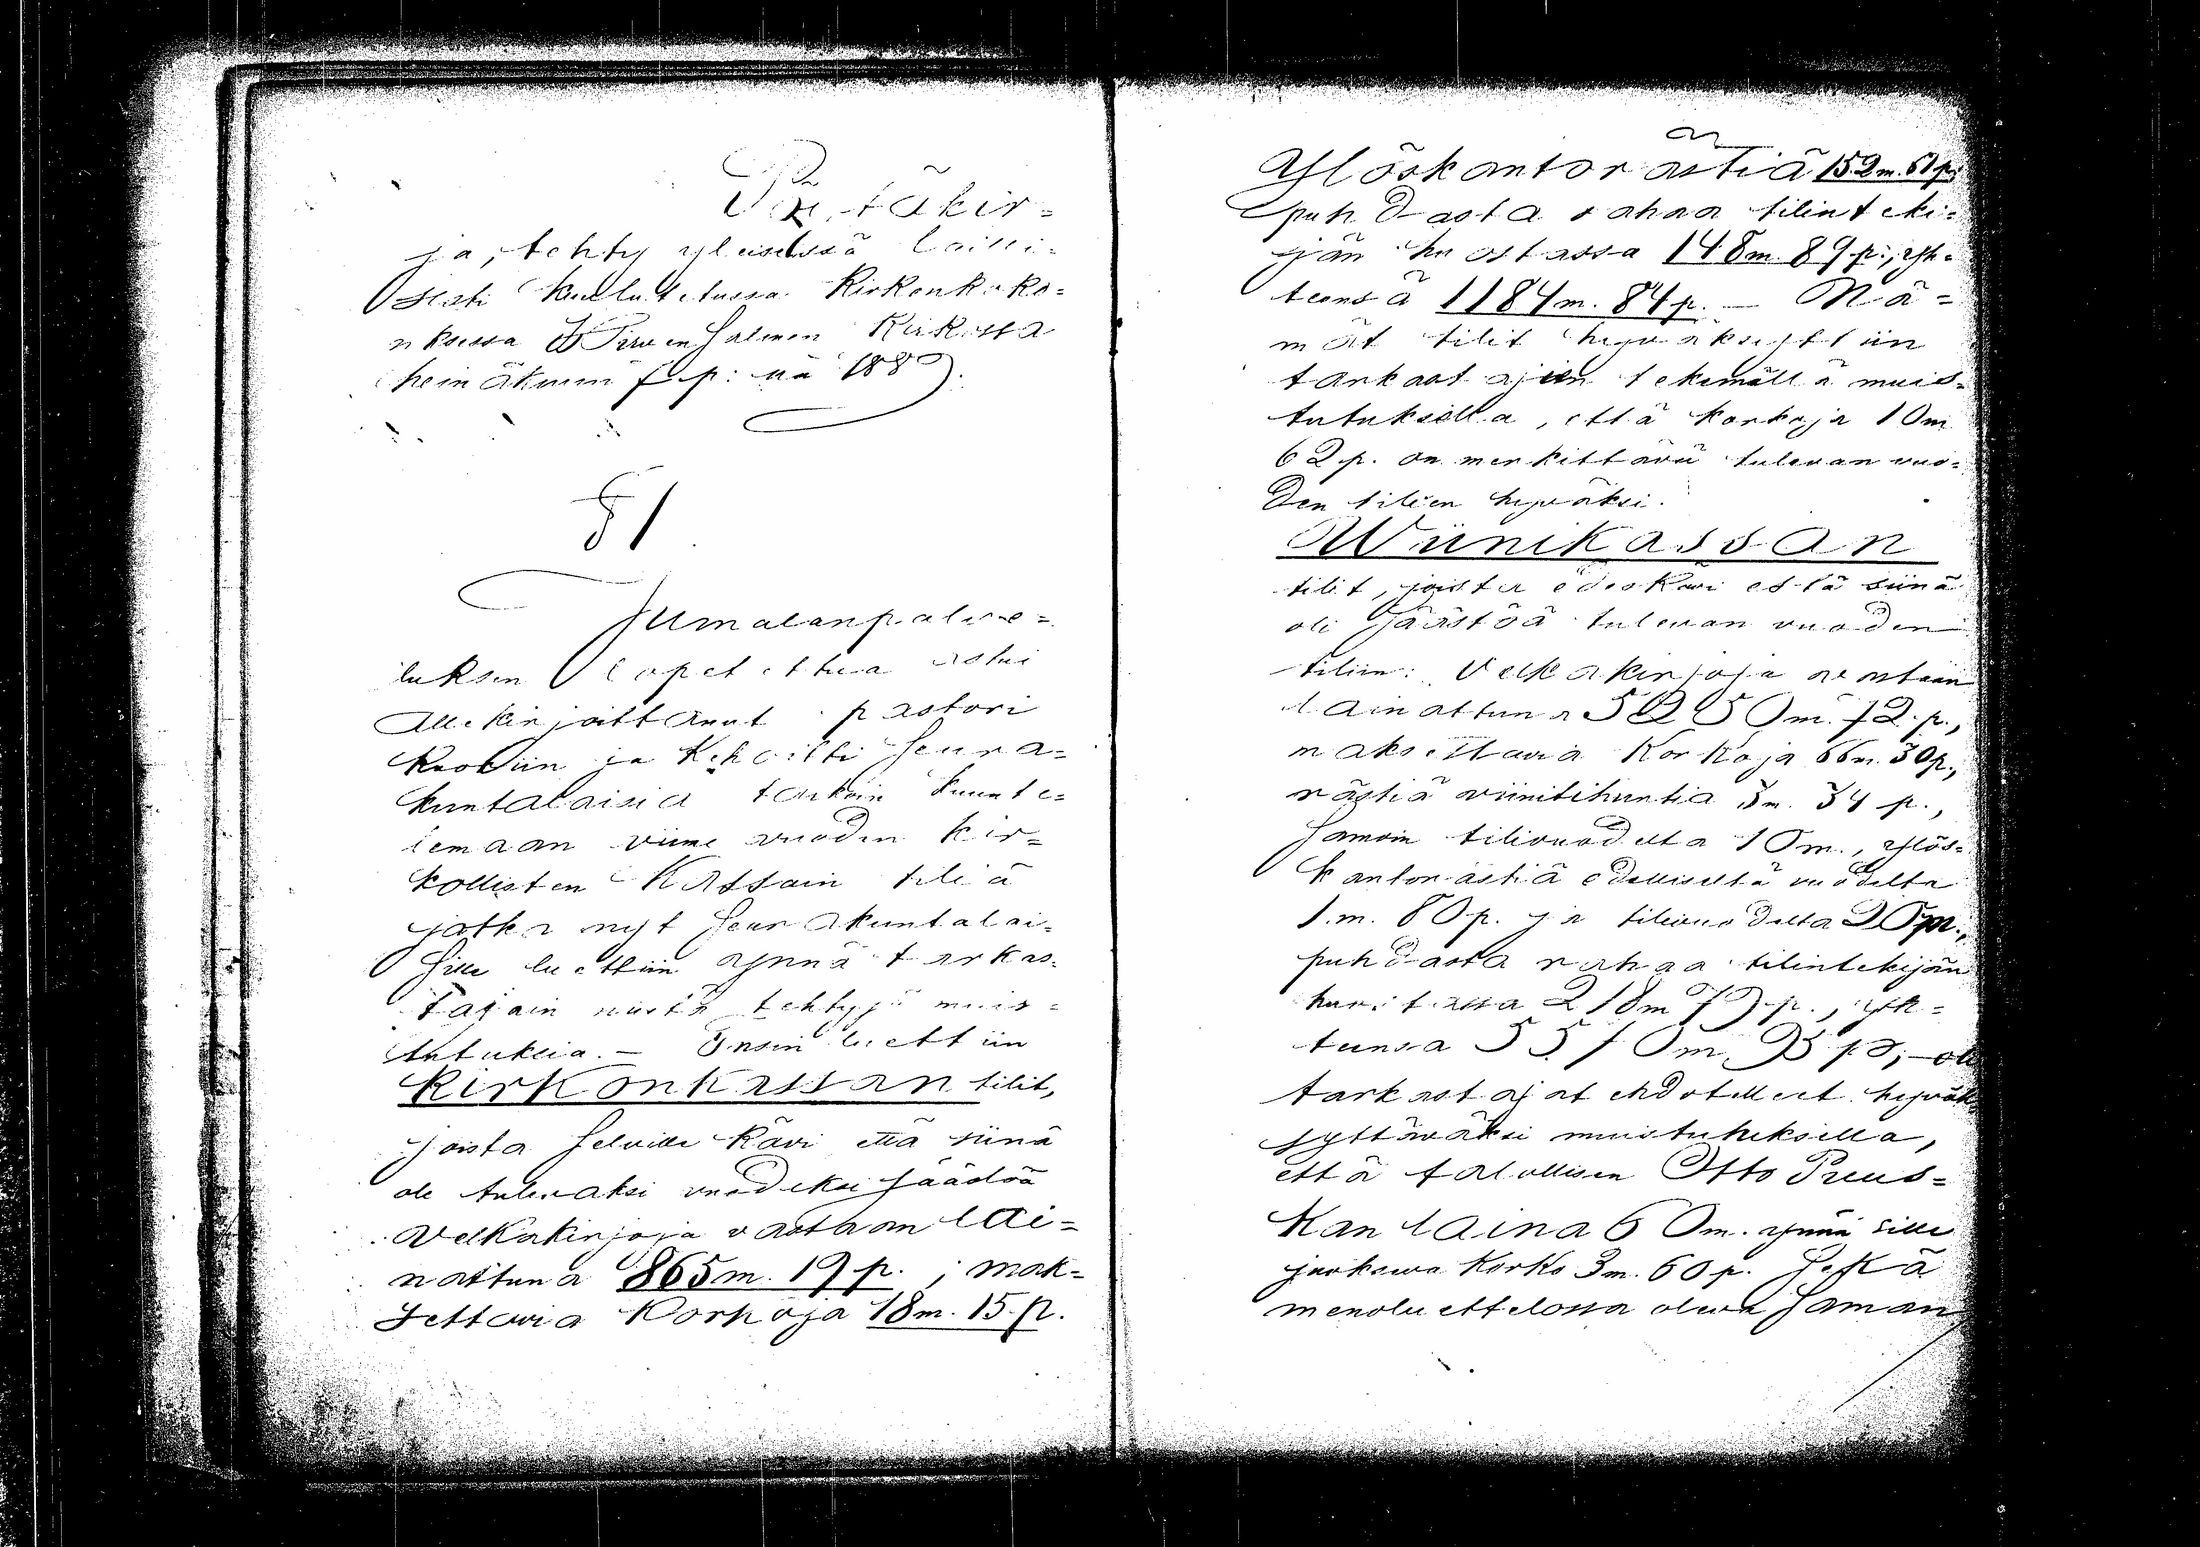 Pöytäkir=
ja, tehty yleisessä lailli=
sesti kuulutetussa Kirkonkoko=
uksessa Hirvensalmen Kirkossa
heinäkuun p: nä 188
§ 1
Jumalanpalve=
luksen lopetettua astui
Allekirjoittanut pastori
Kuoriin ja Kehoitti Seura=
kuntalaisia tarkoin kuunte=
lemaan viime vuoden kir=
kollisten Kassain tiliä
jotka nyt Seurakuntalai=
sille luettiin ynnä tarkas=
tajain niistä tehtyjä muis=
tutuksia. — Ensin luettiin
Kirkonkassan tilit,
joista Selville Kävi että siinä
oli tulevaksi vuodeksi säästöä
Velkakirjoja vastaan lai=
nattuna 865 m. 19 p. ; mak=
settavia Korkoja 18 m. 15 p.
Ylöskantorästiä 152 m. 61 p;
puhdasta rahaa tilinteki=
jän huostassa 148 m. 89 p:, yh=
teensä 1184 m. 84 p. — Nä=
mät tilit hyväksyttiin
tarkastajien tekemällä muis=
tutuksella, että korkoja 10 m
62 p. on merkittävä tulevan vuo=
den tilien hyväksi.
Wiinikassan
tilit, joista edeskävi että siinä
oli Säästöä tulevan vuoden
tiliin: Velkakirjoja vastaan
lainattuna 5250 m. 72 p.,
maksettavia Korkoja 66 m. 30 p.,
rästiä viinitihuntia 3 m. 34 p.,
Samoin tilivuodelta 10 m., ylös=
kantorästiä edelliseltä vuodelta
1 m. 80 p. ja tilivuodelta 20 m.,
puhdasta rahaa tilintekijän
huostassa 218 m 79 p., yh=
teensä 5570 m 95 p:ä, — oli
tarkastajat ehdotelleet hyväk
syttäwäksi muistutuksella,
että talollisen Otto Pruus=
Kan laina 60 m. ynnä sille
juokseva korko 3 m. 60 p. Sekä
menoluettelossa oleva Saman